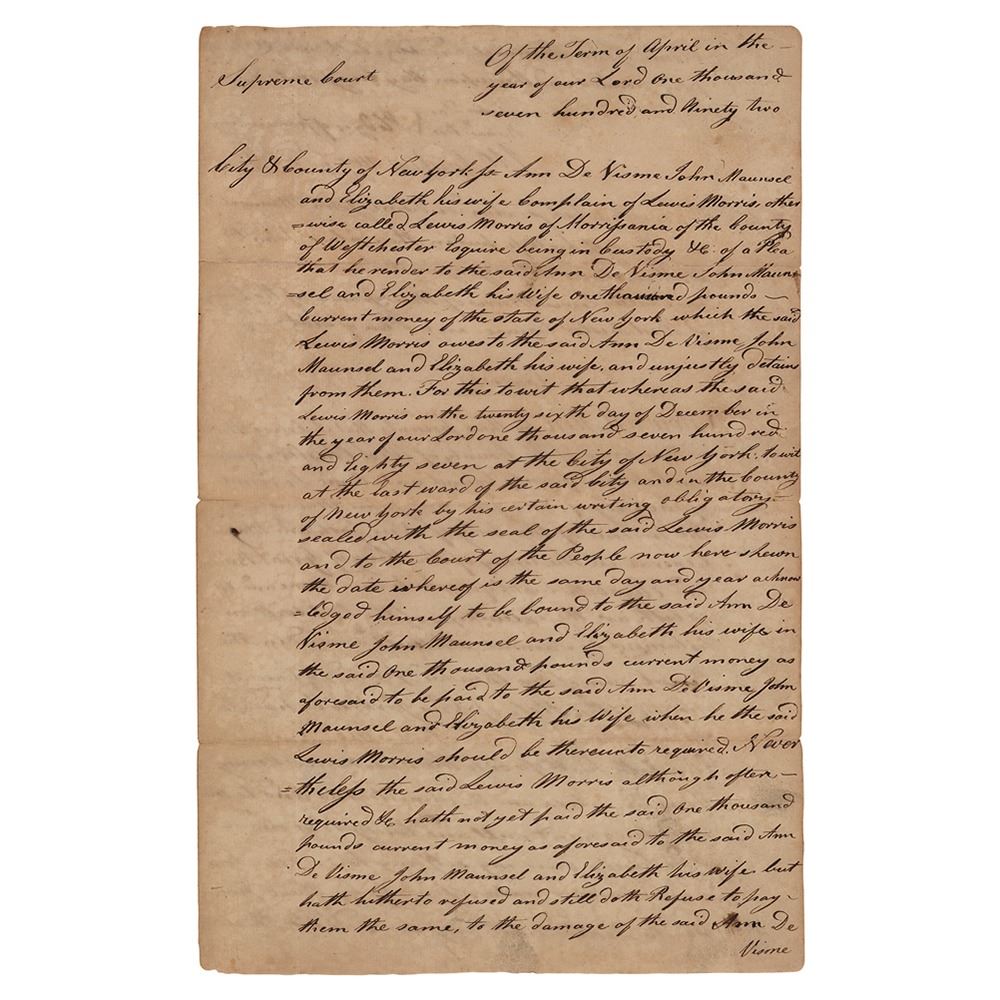 Of the Term of April in the –
Supreme Court
year of our Lord One thousand
seven hundred and Ninety two
City & County of New york ss Ann De Visme John Maunsel
and Elizabeth his wife Complain of Lewis Morris, other
=wise called Lewis Morris of Morrissania of the County
of Westchester Esquire being in Custody &c. of a Plea
that he render to the said Ann De Visme John Maun=
=sel and Elizabeth his Wife one thousand pounds –
Current money of the state of New York which the said
Lewis Morris owes to the said Ann De Visme John
Maunsel and Elizabeth his wife, and unjustly detains
from them. For this to wit that whereas the said
Lewis Morris on the twenty sixth day of December in
the year of our Lord one thousand seven hundred
and Eighty seven at the City of New York. to wit
at the East ward of the said City and in the County
of New York by his certain writing obligatory =
sealed with the seal of the said Lewis Morris
and to the Court of the People now here shewn
the date whereof is the same day and year acknow
=ledged himself to be bound to the said Ann De
Visme John Maunsel and Elizabeth his wife in
the said One thousand pounds current money as
aforesaid to be paid to the said Ann De Visme John
Maunsel and Elizabeth his Wife when he the said
Lewis Morris should be thereunto required. Never
=theless the said Lewis Morris although often –
required &c. hath not yet paid the said One thousand
pounds current money as aforesaid to the said Ann
De Visme John Maunsel and Elizabeth his wife but
hath hitherto refused and still doth Refuse to pay –
them the same, to the damage of the said Ann De
Visme